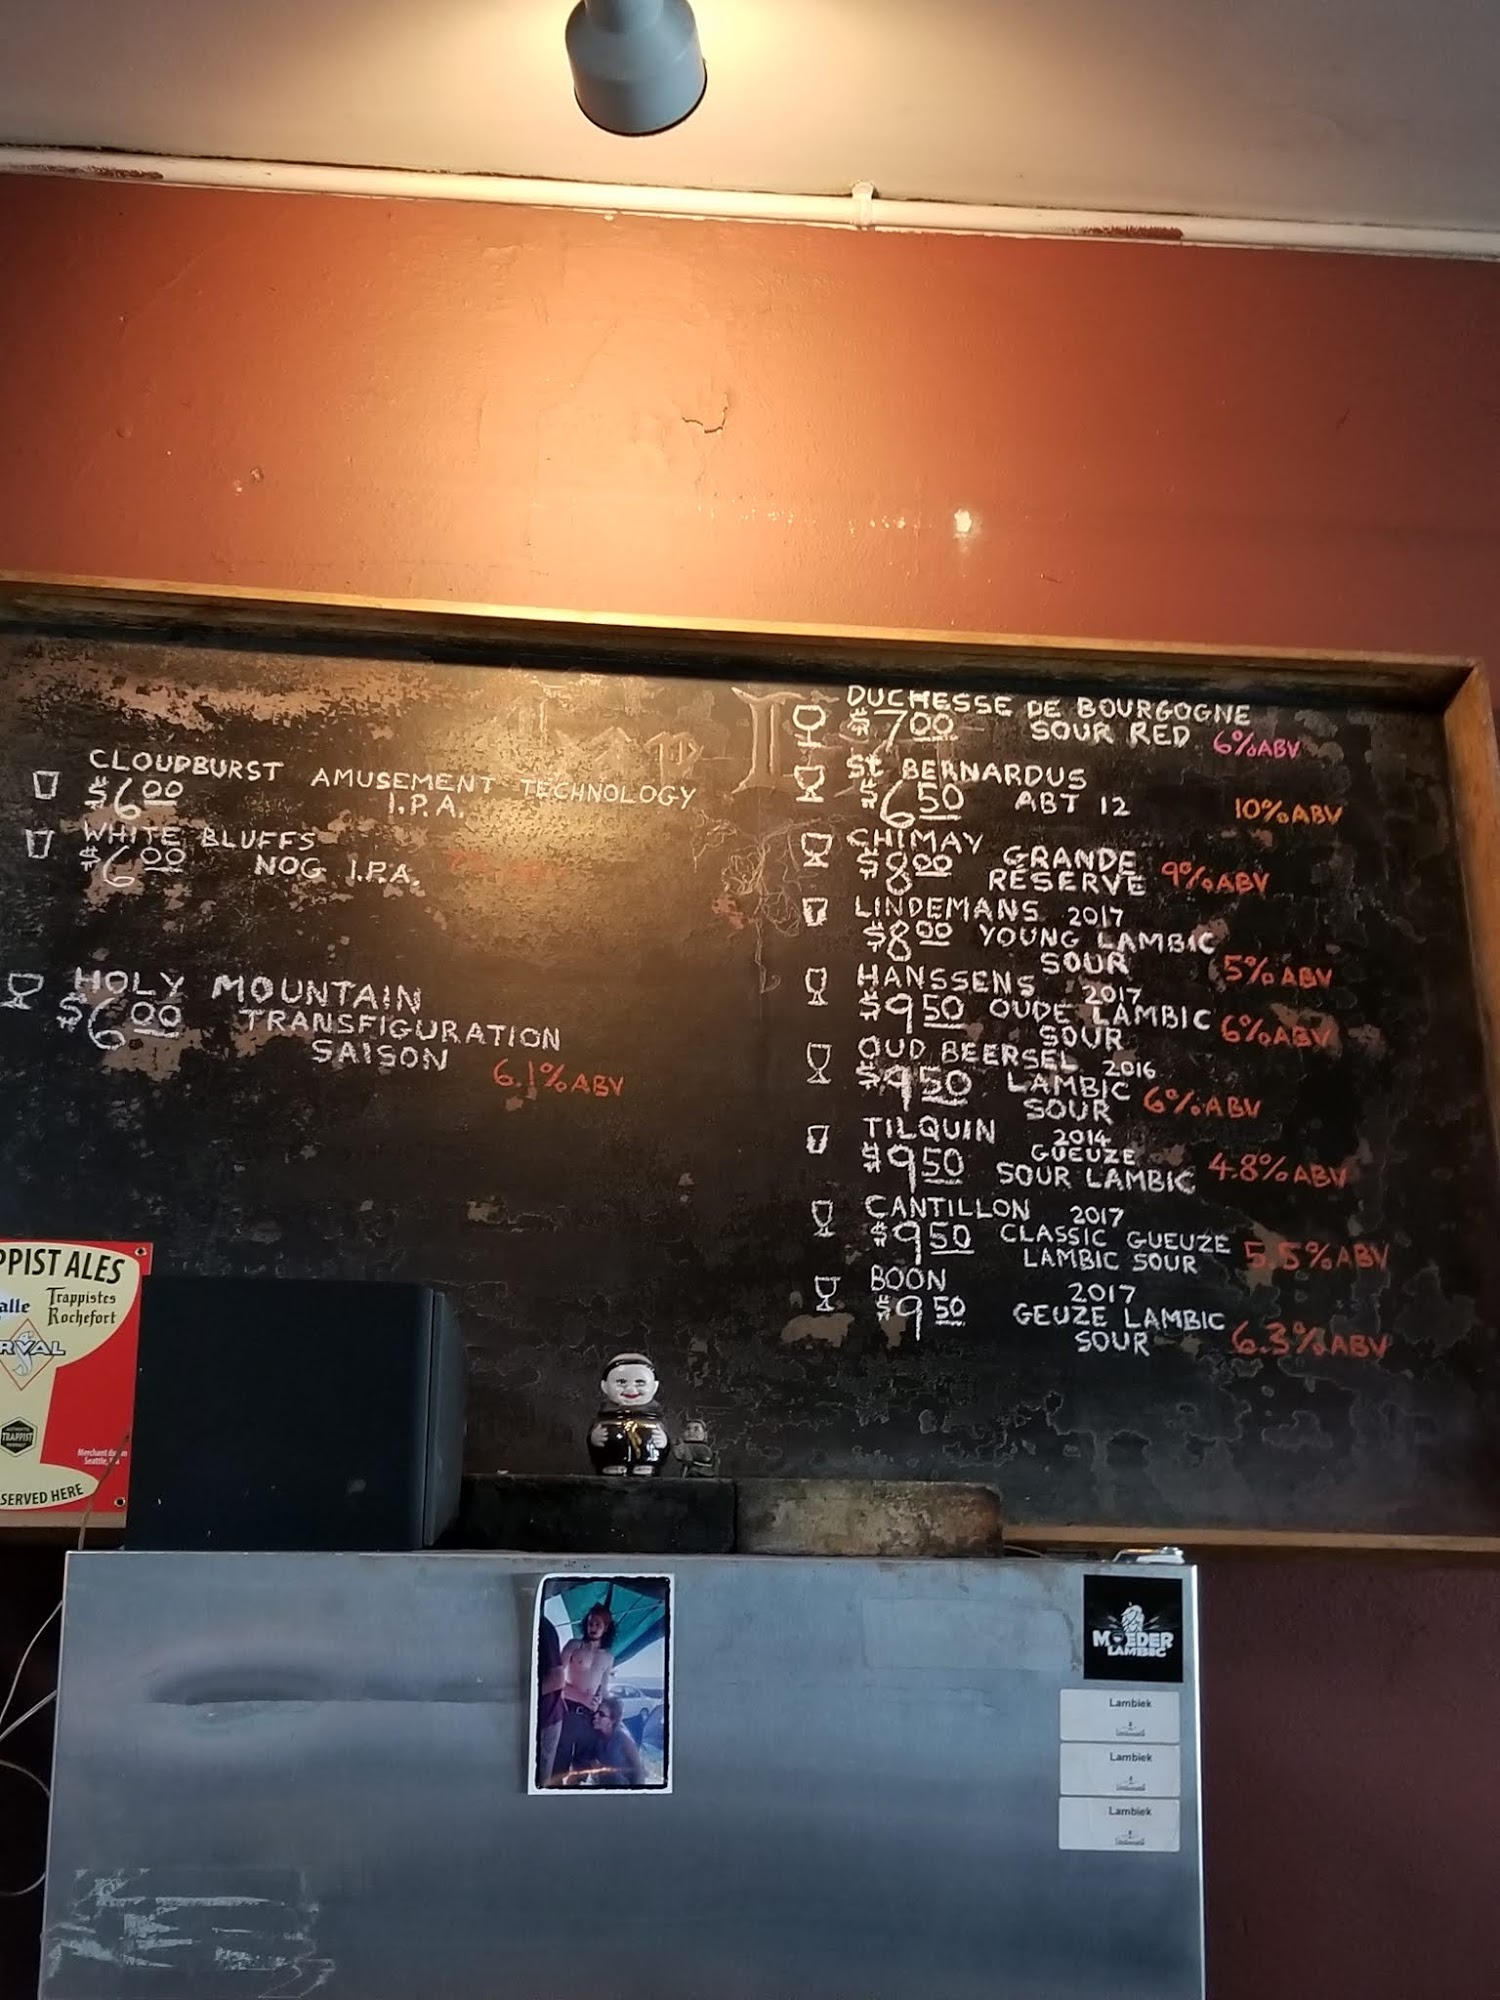 CLOUDBURST AMUSEMENT TECHNOLOGY
$6.00 I.P.A.
WHITE BLUFFS
$6.00 NOG I.P.A.
HOLY MOUNTAIN
$6.00 TRANSFIGURATION
SAISON
6.1% ABV
DUCHESSE DE BOURGOGNE
$7.00 SOUR RED 6% ABV
St BERNARDUS
$6.50 ABT 12 10% ABV
CHIMAY
$8.00 GRANDE
RESERVE 9% ABV
LINDEMANS 2017
$8.00 YOUNG LAMBIC
SOUR 5% ABV
HANSSENS 2017
$9.50 OUDE LAMBIC
SOUR 6% ABV
OUD BEERSEL 2016
$9.50 LAMBIC
SOUR 6% ABV
TILQUIN 2014
GUEUZE
$9.50 SOUR LAMBIC 4.8% ABV
CANTILLON 2017
$9.50 CLASSIC GUEUZE
LAMBIC SOUR 5.5% ABV
BOON 2017
$9.50 GEUZE LAMBIC
SOUR 6.3% ABV
PPIST ALES
alle Trappistes
Rochefort
RVAL
TRAPPIST
Seattle,
SERVED HERE
MOEDER
LAMBIC
Lambiek
Lambiek
Lambiek